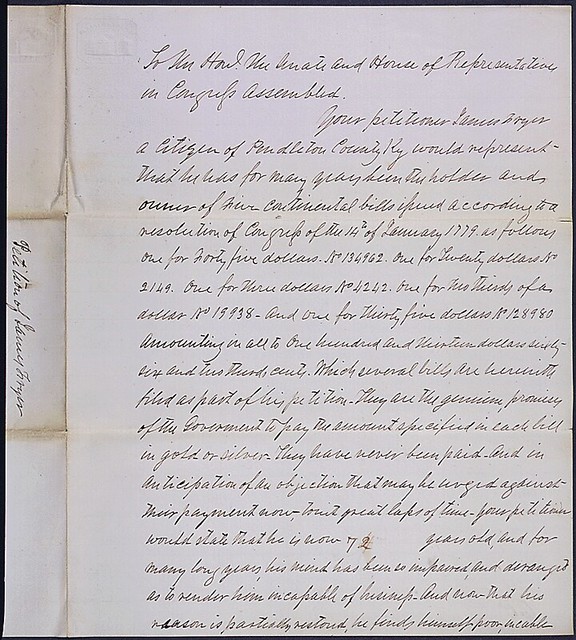 To the Honl. the Senate and House of Representatives
in Congress Assembled.
Your petitioner James Fryer
a Citizen of Pendleton County Ky would represent
that he has for many years been the holder and
owner of Five Continental bills issued according to a
resolution of Congress of the 14th of January 1779. as follows
One for Forty five dollars. No 134962. One for Twenty dollars No
2149. One for three dollars No 4242. One for two thirds of a
dollar No 19938 - And one for thirty five dollars No 128980
Amounting in all to One hundred and thirteen dollars sixty
six and two thirds cents. Which several bills are herewith
filed as part of his petition - They are the genuine promises
of the Government to pay the amount specified in each bill
in gold or silver - They have never been paid - And in
anticipation of an objection that may be urged against
their payment now, towit great laps of time - your petitioner
would state that he is now 72 years old, and for
many long years, his mind has been so impaired and deranged
as to render him incapable of business - And now that his
reason is partially restored, he finds himself poor incable
Petition of James Fryer